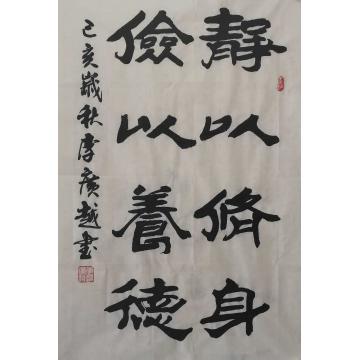 靜以脩身
儉以養德
己亥歲秋李廣越書